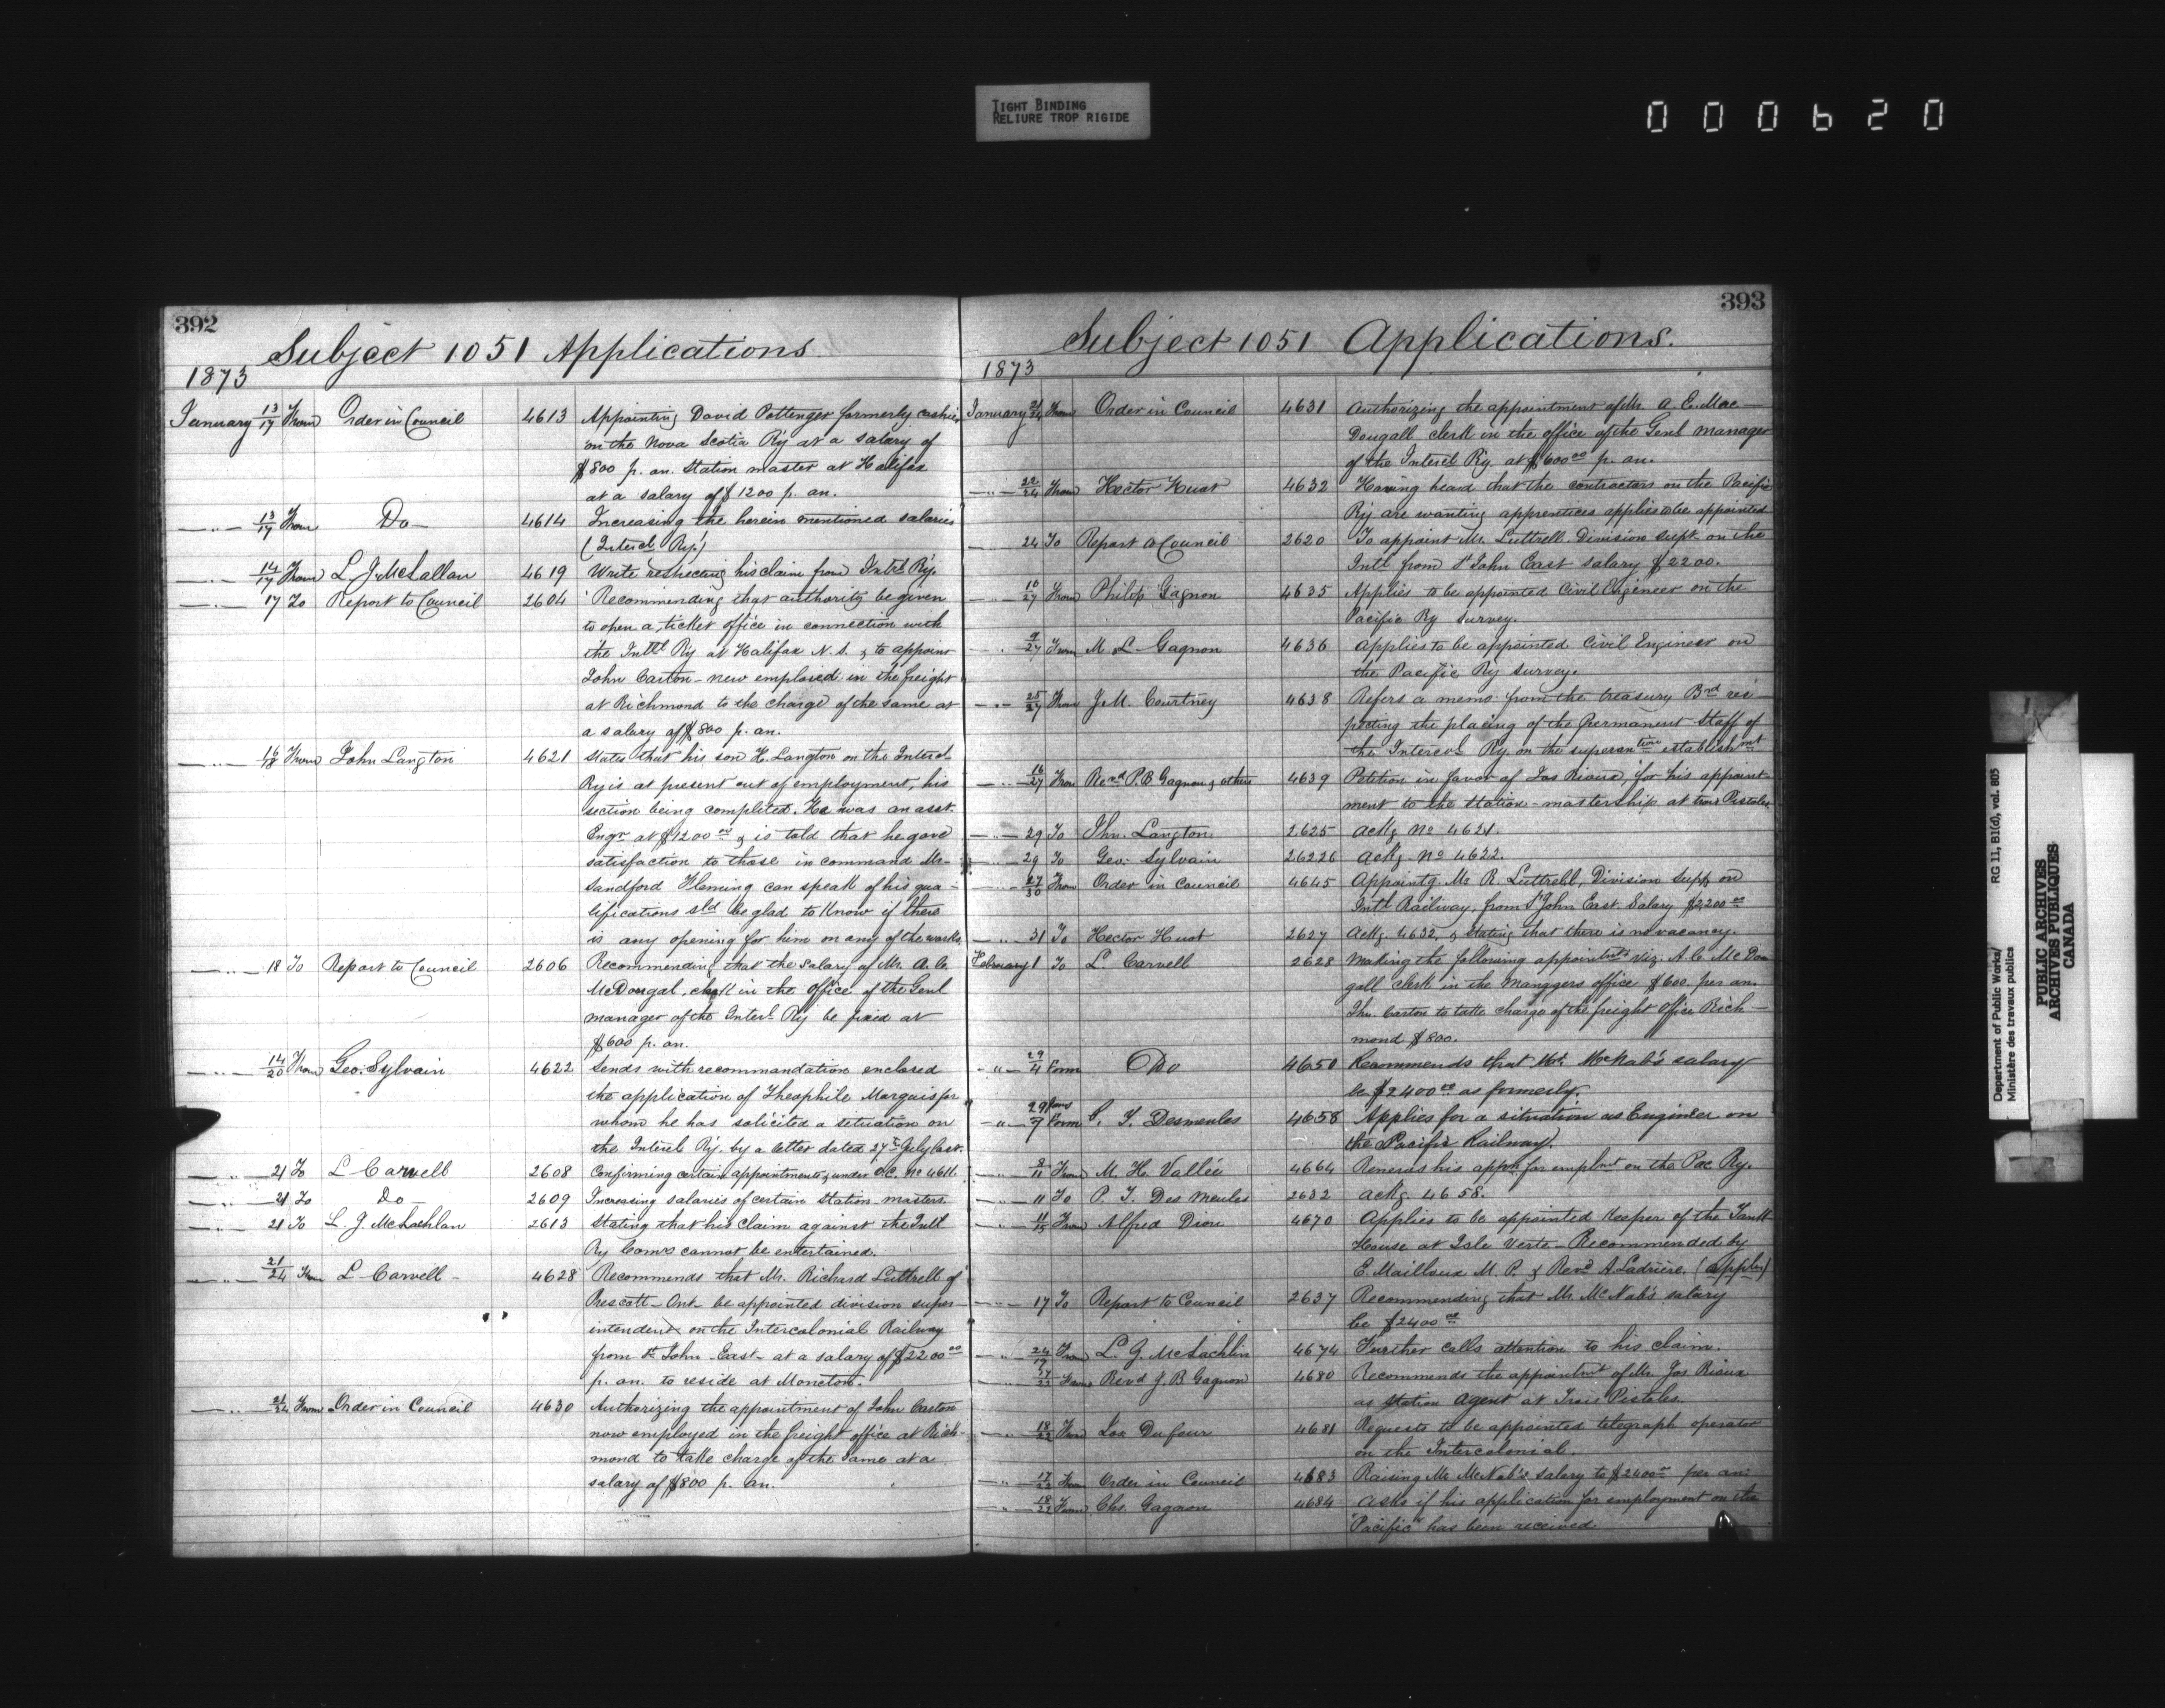 TIGHT BINDING
RELIURE TROP RIGIDE
000620
392
Subject 1051 Applications.
1873
January 13/17 From Order in Council 4613 Appointing David Pottenger formerly cashier
on the Nova Scotia Ry at a salary of
$800 p. an. Station master at Halifax
at a salary of $1200 p. an.
—"— 13/17 From Do— 4614 Increasing the herein mentioned salaries
(Intercl. Ry.)
—"— 14/17 From L. J. McLallan 4619 Write respecting his claim from Intcl Ry.
—"— 17 To Report to Council 2604 Recommending that authority be given
to open a ticket office in connection with
the Intcl Ry at Halifax N. S. & to appoint
John Caston — now employed in the freight
at Richmond to the charge of the same at
a salary of $800 p. an.
—"— 16/18 From John Langton 4621 States that his son H. Langton on the Intercl
Ry is at present out of employment, his
section being completed. He was an asst.
Engr at $1200 00 & is told that he gave
satisfaction to those in command Mr
Sandford Fleming can speak of his qua-
lifications sld be glad to know if there
is any opening for him on any of the works.
—"— 18 To Report to Council 2606 Recommending that the salary of Mr. A. C.
McDougal, clerk in the office of the Genl
manager of the Intercl Ry be fixed at
$600 p. an.
—"— 14/20 From Geo. Sylvain 4622 Sends with recommandation enclosed
the application of Theophile Marquis for
whom he has solicited a situation on
the Intercl Ry. by a letter dated 27th July last.
—"— 21 To L Carvell 2608 Confirming certain appointments under O.C. No 4611.
—"— 21 To Do— 2609 Increasing salaries of certain station masters.
—"— 21 To L. J. McLachlan 2613 Stating that his claim against the Intl
Ry Comrs cannot be entertained.
—"— 21/24 From L Carvell— 4628 Recommends that Mr. Richard Luttrell of
Prescott — Ont — be appointed division super-
intendent on the Intercolonial Railway
from St John East — at a salary of $2200 00
p. an. to reside at Moncton.
—"— 21/24 From Order in Council 4630 Authorizing the appointment of John Caston
now employed in the freight office at Rich-
mond to take charge of the same at a
salary of $800 p. an.
393
Subject 1051 Applications.
1873
January 21/24 From Order in Council 4631 Authorizing the appointment of Mr. A. C. Mac-
Dougall clerk in the office of the Genl manager
of the Intercl Ry. at $600 00 p. an.
—"— 22/24 From Hector Huot 4632 Having heard that the contractors on the Pacific
Ry are wanting apprentices applies to be appointed
24 To Report to Council 2620 To appoint Mr. Luttrell. Division supt on the
Intl from St John East salary $2200.
—"— 10/27 From Philip Gagnon 4635 Applies to be appointed Civil Engineer on the
Pacific Ry Survey.
9/27 From M. L Gagnon 4636 Applies to be appointed Civil Engineer on
the Pacific Ry survey.
—"— 25/27 From J. M. Courtney 4638 Refers a memo from the treasury Brd res-
pecting the placing of the Permanent Staff of
the Intercol Ry. on the superantion establishmt
—"— 16/27 From Revd P. B Gagnon & others 4639 Petition in favor of Jos Rioux, for his appoint-
ment to the station-mastership at trois Pistoles
—"— 29 To Jhn. Langton 2625 Ackg No 4621.
—"— 29 To Geo. Sylvain 26226 Ackg. No 4622.
—"— 27/30 From Order in Council 4645 Appointg. Mr R. Luttrell, Division Supt on
Intl Railway, from St John East Salary $2200 00
—"— 31 To Hector Huot 2627 Ackg. 4632. & Stating that there is no vacancy.
February 1 To L Carvell 2628 Making the following appointmts viz. A. C McDou
gall clerk in the Managers office $600. per an.
Jhn. Caston to take charge of the freight office Rich—
mond $800.
—"— 29/4 From Do 4650 Recommends that Mr. McNab's salary
be $2400 00 as formerly.
—"— 29 Janv/7 From C. T. Desmeules 4658 Applies for a situation as Engineer on
the Pacific Railway.
—"— 8/11 From M. H. Vallée 4664 Renews his appn for emplmt on the Pac Ry.
—"— 11 To P. T. Des Meules 2632 Ackg 4658.
—"— 11/15 From Alfred Dion 4670 Applies to be appointed Keeper of the Tank
House at Isle Verte — Recommended by
E. Mailloux M. P. & Revd A Ladrière.
—"— 17 To Report to Council 2637 Recommending that Mr. McNab's salary
be $2400 00
—"— From L. G. McLachlin 4674 Further calls attention to his claim.
17/22 From Revd J. B. Gagnon 4680 Recommends the appointmt of Mr. Jos. Rioux
as station agent at Trois Pistoles.
—"— 18/22 From Dufour 4681 Requests to be appointed telegraph operator
on the Intercolonial.
—"— 17/22 From Order in Council 4683 Raising Mr McNab's salary to $2400 00 per an.
—"— 18/22 From Chs. Gagnon 4684 Asks if his application for employment on the
"Pacific" has been received
Department of Public Works/ RG 11, B1(d), vol. 805
Ministère des travaux publics
PUBLIC ARCHIVES
ARCHIVES PUBLIQUES
CANADA